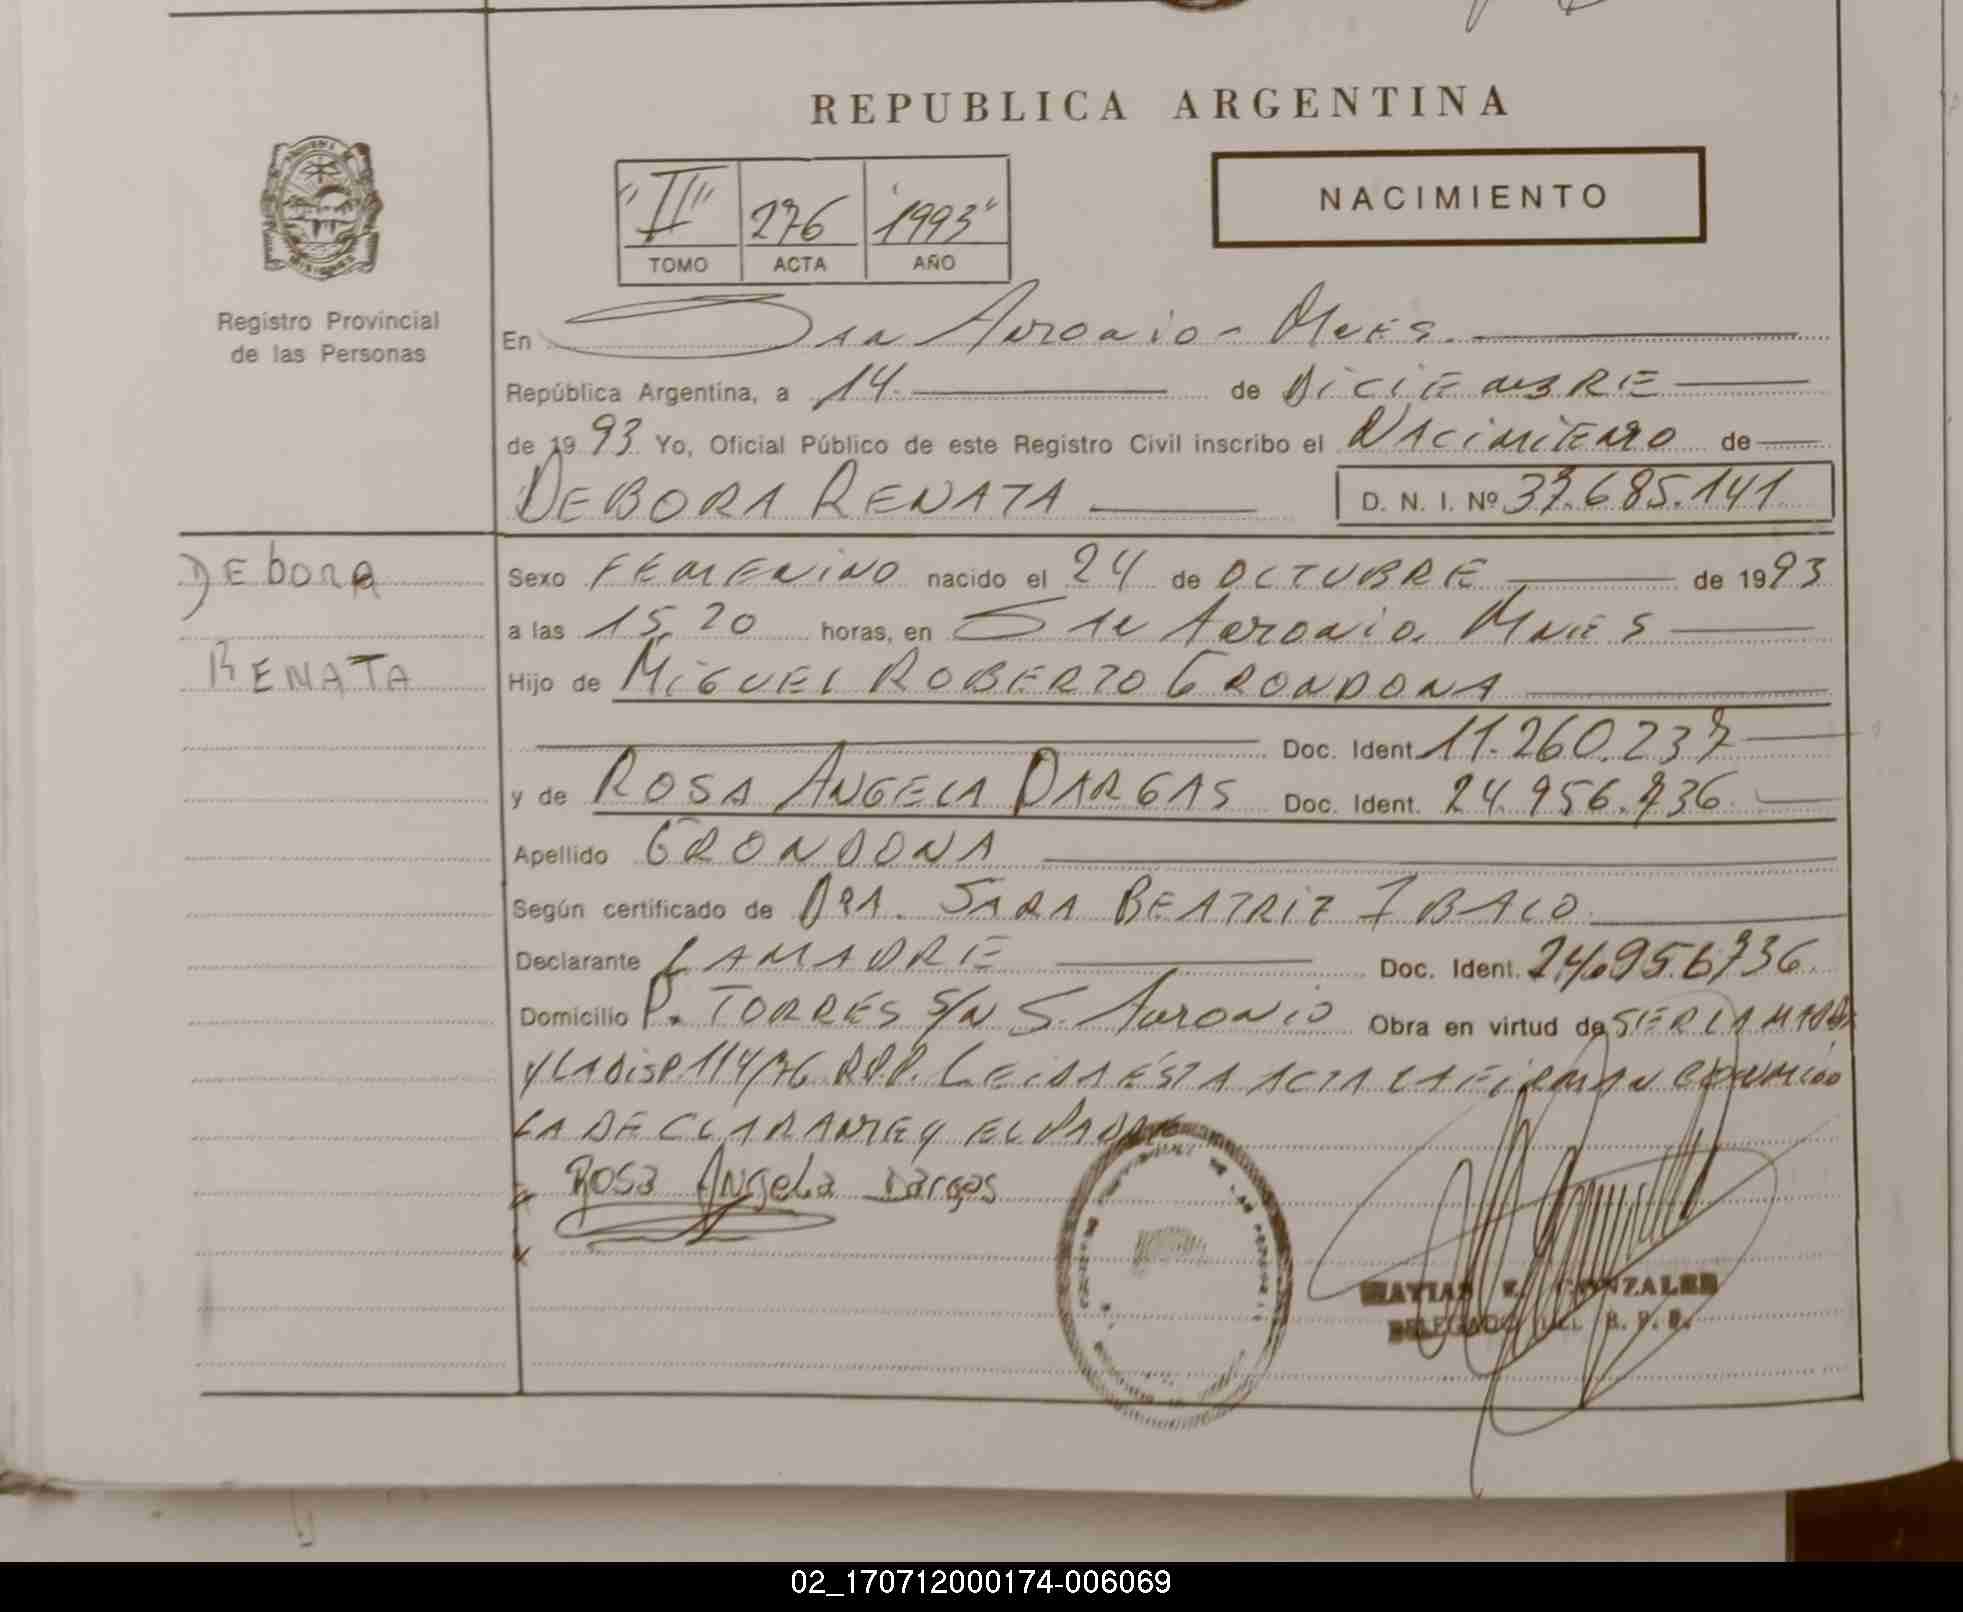 REPUBLICA ARGENTINA
"II" 276 1993"
TOMO ACTA AÑO
NACIMIENTO
Registro Provincial
de las Personas
En San Antonio - Mnes.
República Argentina, a 14 de DICIEMBRE
de 1993 Yo, Oficial Público de este Registro Civil inscribo el NACIMIENTO de
DEBORA RENATA D. N. I. Nº 37.685.141
DEbora
RENATA
Sexo FEMENINO nacido el 24 de OCTUBRE de 1993
a las 15,20 horas, en SAN Antonio. Mnes
Hijo de MIGUEL ROBERTO GRONDONA
Doc. Ident. 11.260.237
y de ROSA ANGELA DARGAS Doc. Ident. 24.956.736
Apellido GRONDONA
Según certificado de DRA. SARA BEATRIZ
Declarante LA MADRE Doc. Ident. 24.956.736
Domicilio P. TORRES S/N S. Antonio Obra en virtud de SER LA MADRE
Y LA DISP. 114/76 R.P.P. LEIDA ESTA ACTA LA FIRMAN CONMIGO
LA DECLARANTE Y EL PADRE
Rosa Angela Dargas
MATIAS E. GONZALEZ
DELEGADO DEL R. P. P.
02_170712000174-006069